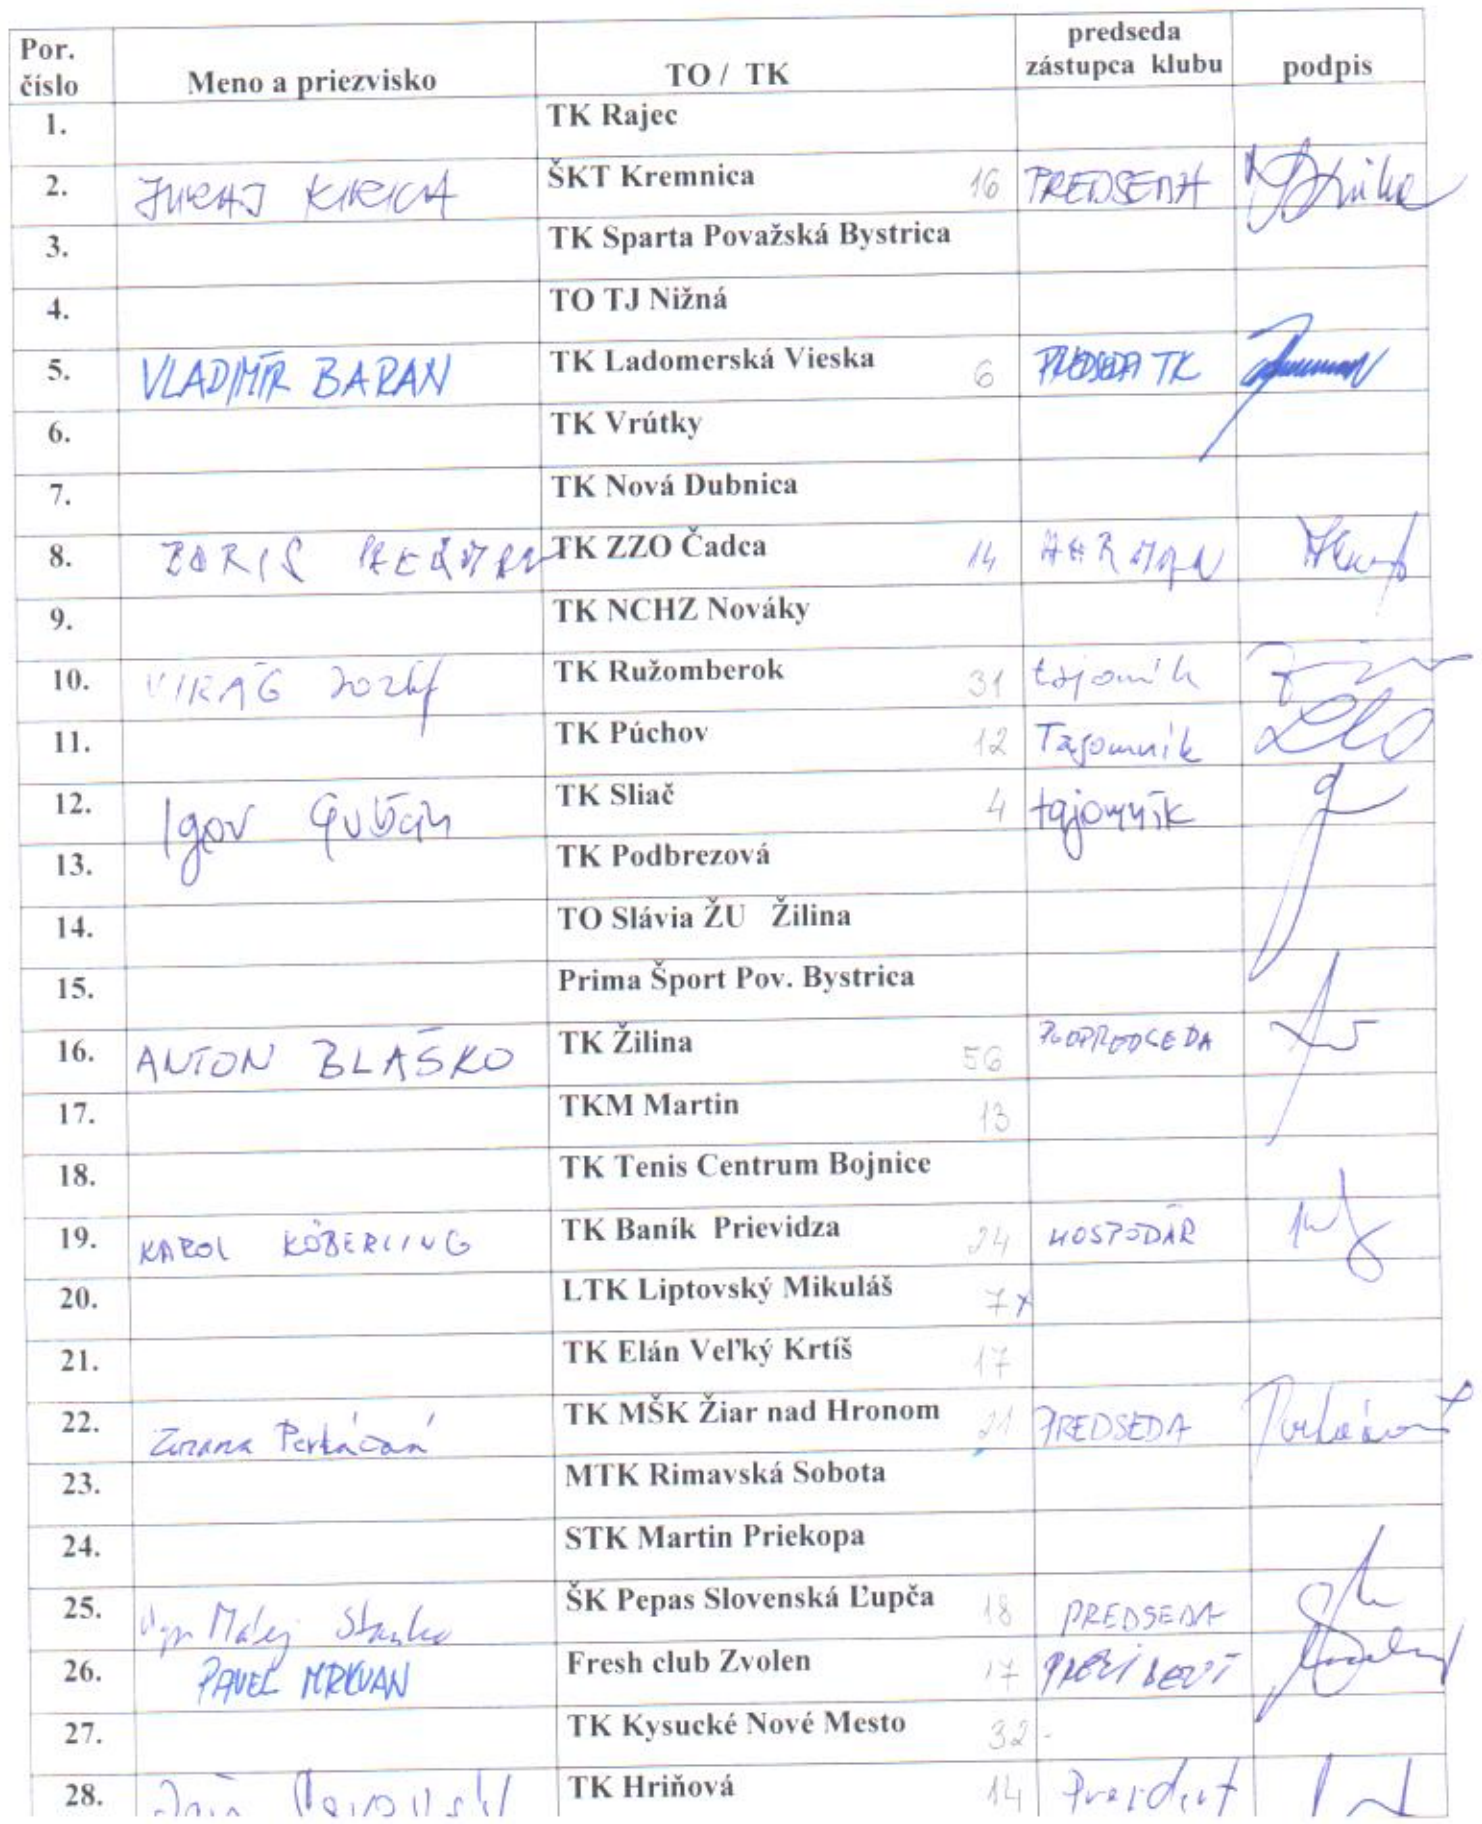 Por. číslo Meno a priezvisko TO / TK predseda zástupca klubu podpis
1. TK Rajec
2. JURAJ KIRICA ŠKT Kremnica 16 PREDSEDA
3. TK Sparta Považská Bystrica
4. TO TJ Nižná
5. VLADIMÍR BARAN TK Ladomerská Vieska 6 PREDSEDA TK
6. TK Vrútky
7. TK Nová Dubnica
8. BORIS HERMAN TK ZZO Čadca 14 HERMAN
9. TK NCHZ Nováky
10. VIRÁG Jozef TK Ružomberok 31 tajomník
11. TK Púchov 12 Tajomník
12. Igor TK Sliač 4 tajomník
13. TK Podbrezová
14. TO Slávia ŽU Žilina
15. Prima Šport Pov. Bystrica
16. ANTON BLAŠKO TK Žilina 56 PODPREDSEDA
17. TKM Martin 13
18. TK Tenis Centrum Bojnice
19. KAROL KÖBERLING TK Baník Prievidza 24 HOSPODÁR
20. LTK Liptovský Mikuláš 7 x
21. TK Elán Veľký Krtíš 17
22. Zuzana TK MŠK Žiar nad Hronom 21 PREDSEDA
23. MTK Rimavská Sobota
24. STK Martin Priekopa
25. Matej ŠK Pepas Slovenská Ľupča 18 PREDSEDA
26. PAVEL MRKVAN Fresh club Zvolen 17 PREZIDENT
27. TK Kysucké Nové Mesto 32 -
28. TK Hriňová 14 Prezident